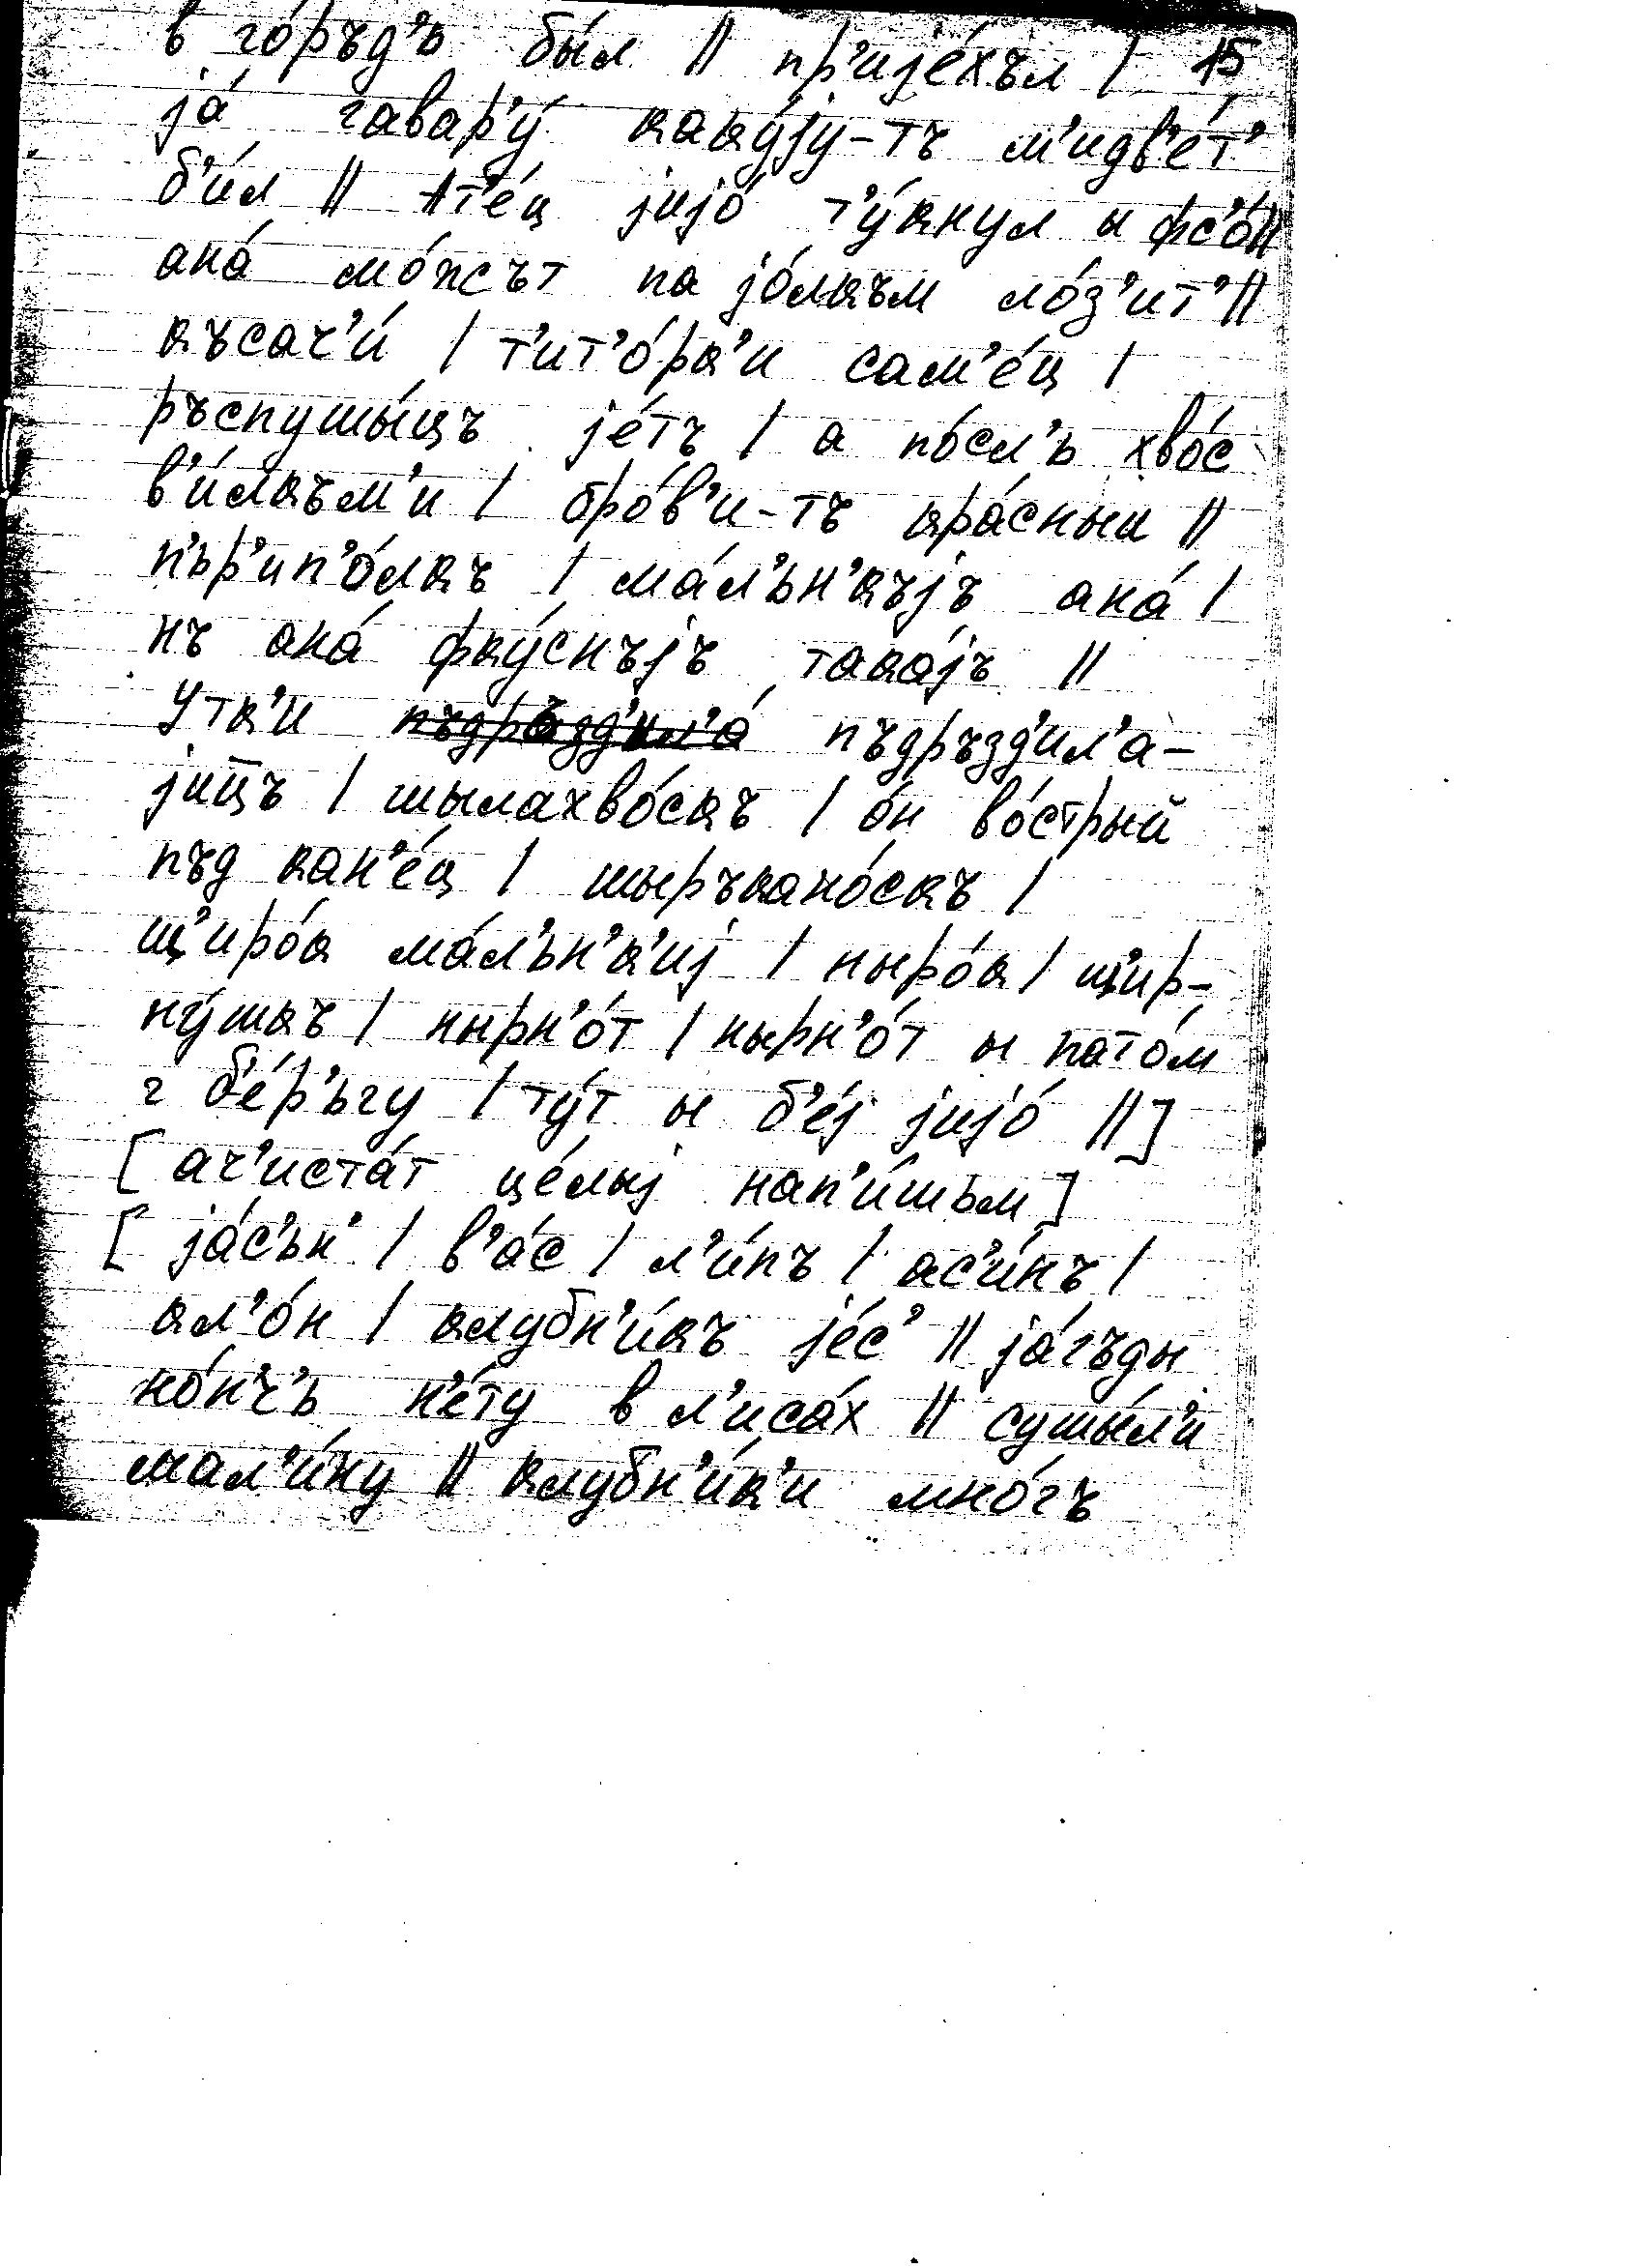 в го́ръд'ь бы́л || пр'ијéхъл | 15
já гавар'у́ каку́ју-тъ м'идв'éт'
б'и́л || Ат'éц јијó т'у́кнул и фс'ó||
анá мóжът па јóлкъм лáз'ит' ||
късач'и́ | т'ит'óрк'и сам'éц |
ръспушы́цъ јéтъ | а пóсл'ь хвóс
в'и́лкъм'и | брóв'и-тъ крáсныи ||
п'ьр'ип'óлкъ | мáл'ьн'къјъ анá |
нъ анá фку́снъјъ такáјъ ||
Утк'и пъдрăзд'ил'á пъдръзд'ил'а-
јиц̄ъ | шылахвóскъ | óн вóстрый
пъд кан'éц | шыръканóскъ |
щ'ирóк мáл'ьн'к'иј | нырóк | щ'ир-
ну́шкъ | нырн'óт | нырн'óт ы патóм
г б'éр'ьгу | ту́т ы б'éј јијó ||]
[ ач'истáт цéлыј нап'и́шьм ]
[ јáс'ьн' | в'áс | л'и́пъ | ас'и́нъ |
кл'óн | клубн'и́къ јéс' || јáгъды
нóн'ч'ь н'éту в л'исáх || сушы́л'и
мал'и́ну || клубн'и́к'и мнóгъ